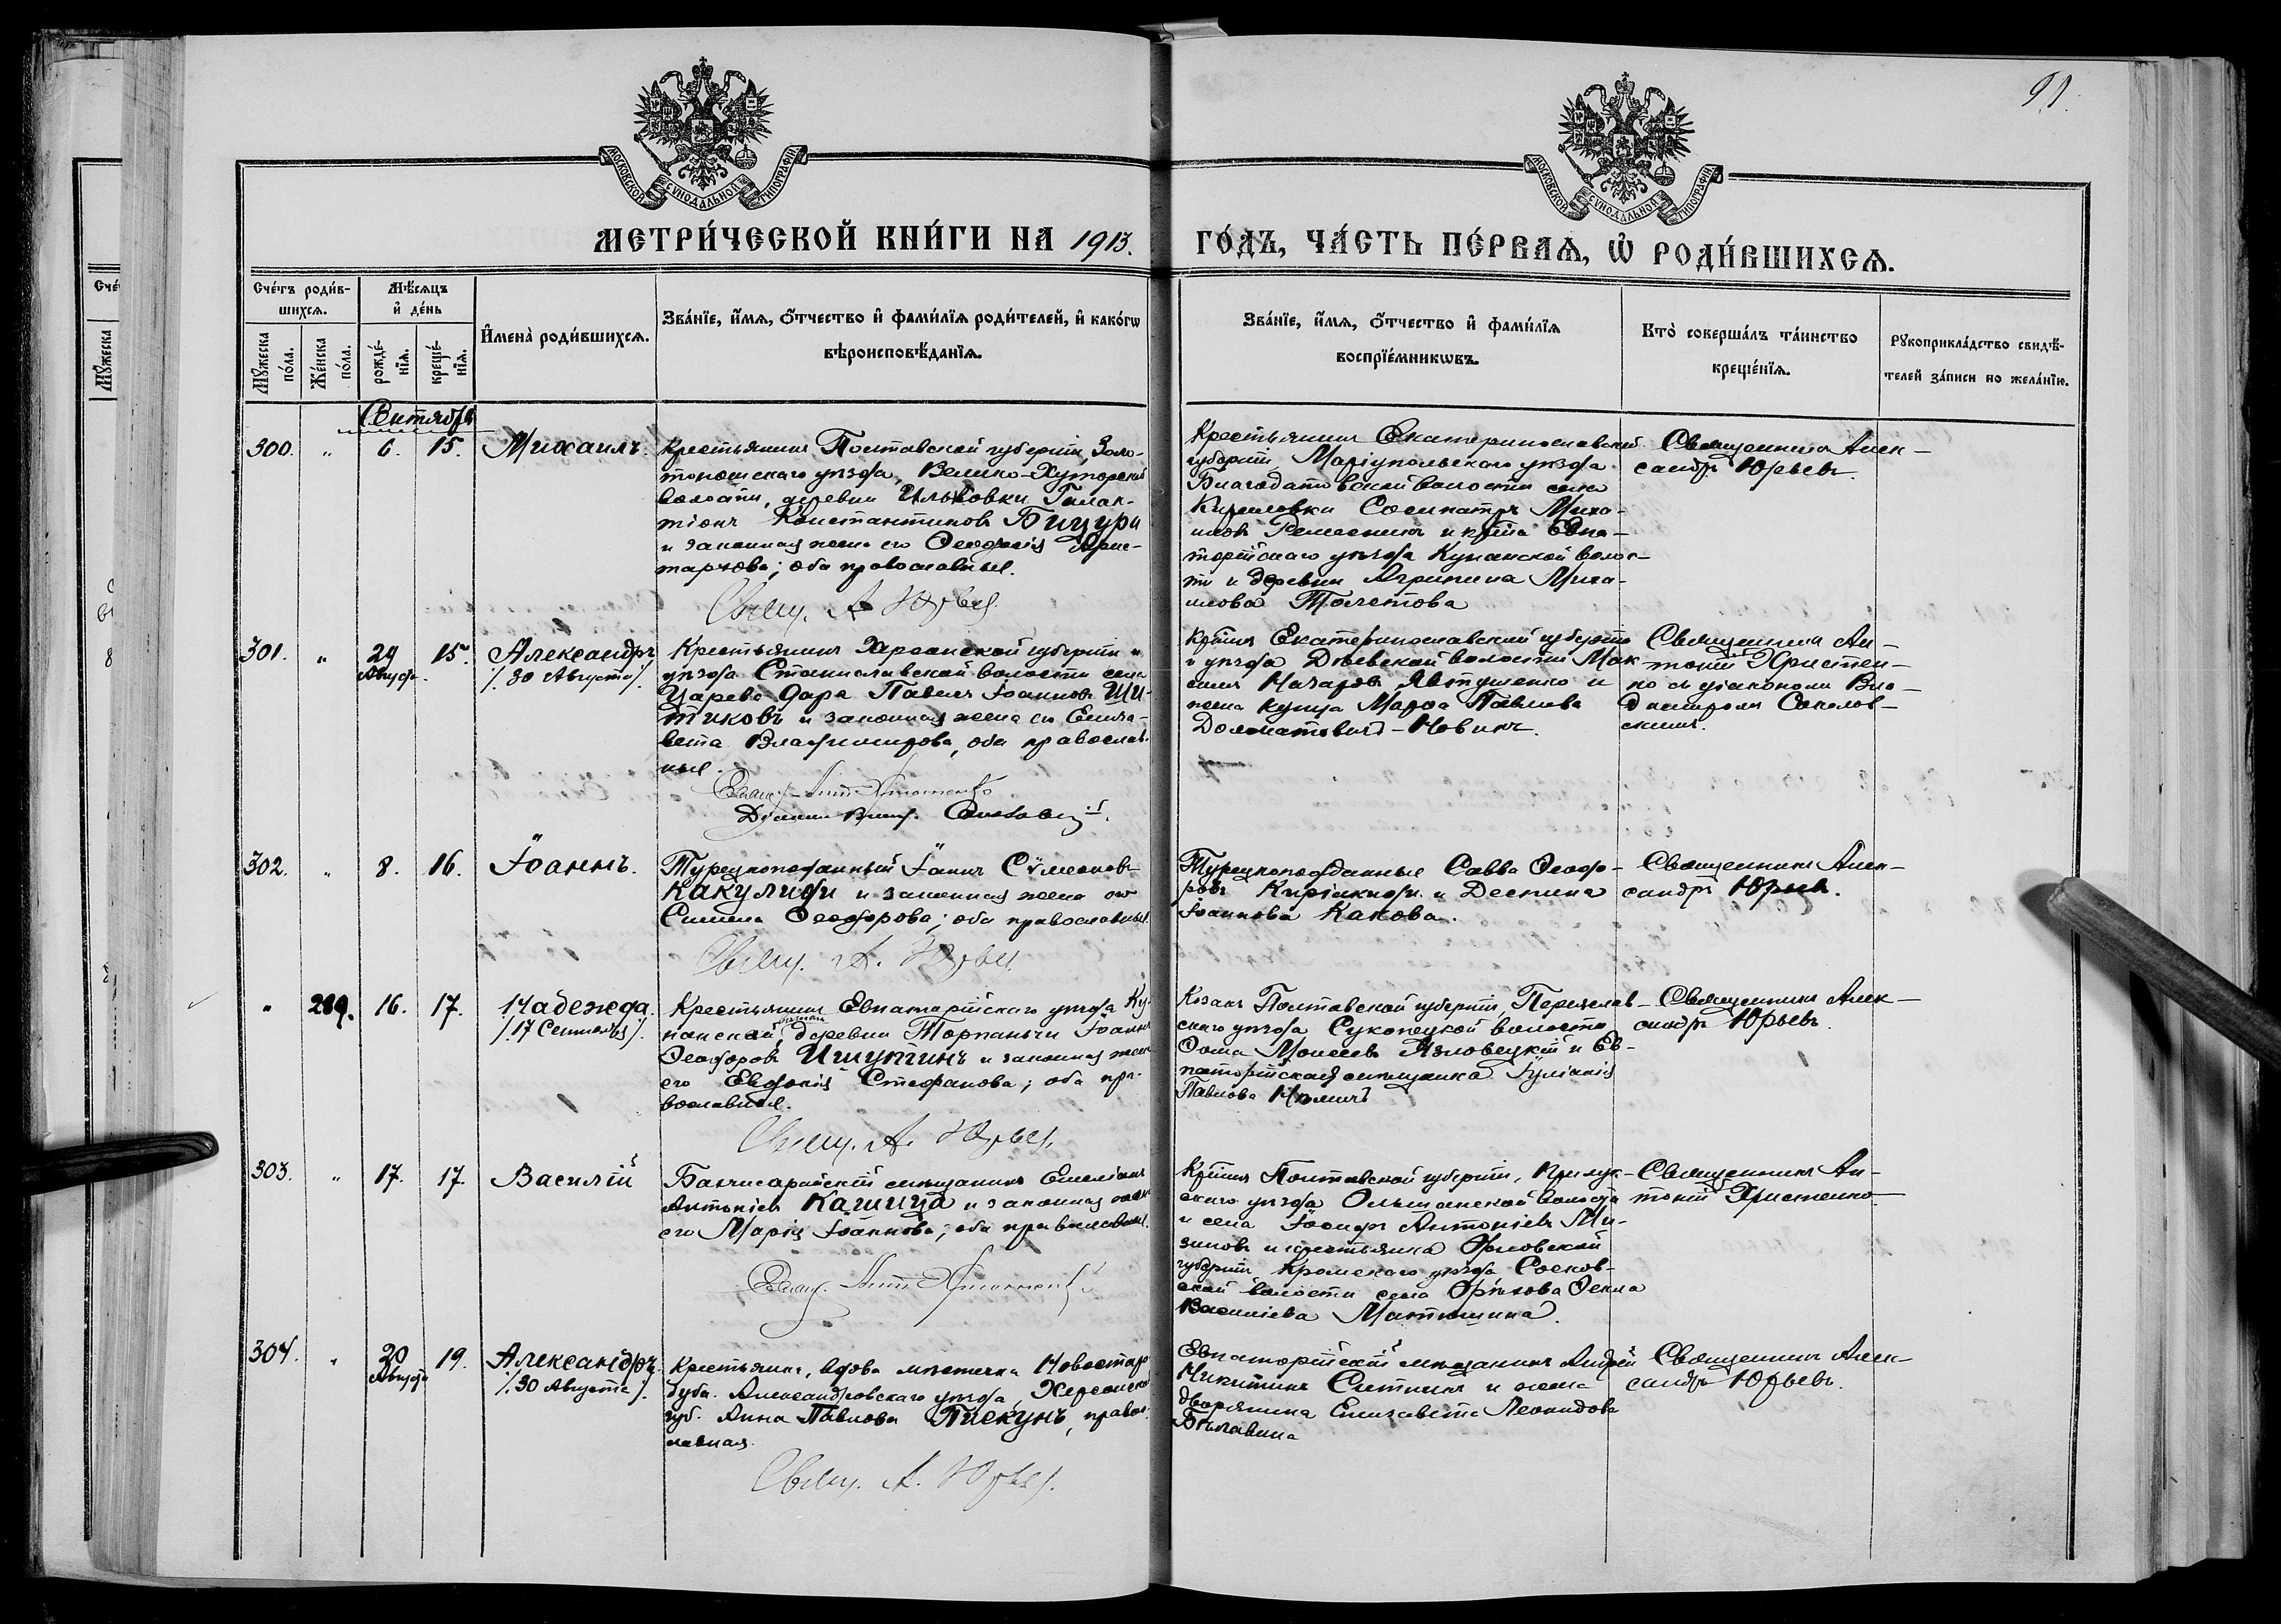 91.
МОСКОВСКОЙ СѴНОДАЛЬНОЙ ТИПОГРАФІИ
МОСКОВСКОЙ СѴНОДАЛЬНОЙ ТИПОГРАФІИ
МЕТРИ́ЧЕСКОЙ КНИ́ГИ НА 1913. ГО́ДЪ, ЧА́СТЬ ПЕ́РВАѦ, Ѡ РОДИ́ВШИХСѦ.
Сче́тъ роди́в-
шихсѧ.
Мꙋ́жеска по́ла.
Же́нска по́ла.
Мѣ́сѧцъ
и҆ де́нь
рожде́-
нїѧ.
креще́-
нїѧ.
И҆мена̀ роди́вшихсѧ.
Зва́нїе, и҆́мѧ, ѻ҆́тчество и҆ фами́лїѧ роди́телей, и҆ како́гѡ
вѣроисповѣ́данїѧ.
Зва́нїе, и҆́мѧ, ѻ҆́тчество и҆ фами́лїѧ
воспрїе́мникѡвъ.
Кто̀ соверша́лъ та́инство
креще́нїѧ.
Рꙋкоприкла́дство свидѣ́-
телей за́писи по жела́нїю.
Сентябрь
300. " 6. 15. Михаилъ.
Крестьянинъ Полтавской губерніи, Золо-
тоношскаго уѣзда, Велико-Хуторской
волости, деревни Ильковки Галак-
тіонъ Константиновъ Бицура
и законная жена его Ѳеодосія Арис-
тархова; оба православные.
Свящ. А Юрьев.
Крестьянинъ Екатеринославской
губерніи Маріупольскаго уѣзда
Благодатовской волости села
Кирилловки Сосипатръ Миха-
иловъ Ремесникъ и кр-нка Евпа-
торійскаго уѣзда Кунанской волос-
ти и деревни Агрипина Миха-
илова Толстова
Священникъ Алек-
сандръ Юрьевъ.
301. " 24 Августа. 15. Александръ
/30 Августа/.
Крестьянинъ Херсонской губерніи и
уѣзда Станиславской волости села
Царева Дара Павелъ Іоанновъ Ши-
тиковъ и законная жена его Елиза-
вета Владимирова, оба православ-
ные.
Свящ. Ант. Христенко
Діаконъ Влад. Соколовскій.
Кр-нинъ Екатеринославской губерніи
и уѣзда Діевской волости Мак-
симъ Назаровъ Явтушенко и
жена купца Марѳа Павлова
Доломатова-Новикъ.
Священникъ Ан-
тоній Христен-
ко съ діакономъ Вла-
димиромъ Соколов-
скимъ.
302. " 8. 16. Іоаннъ.
Турецкоподданный Іаннъ Сѵмеоновъ
Какулиди и законная жена его
Симела Ѳеодорова; оба православные.
Свящ. А. Юрьев.
Турецкоподданные Савва Ѳеодо-
ровъ Киріакиди и Деспина
Іоаннова Какова.
Священникъ Алек-
сандръ Юрьев.
" 289. 16. 17. Надежда.
/17 Сентября/.
Крестьянинъ Евпаторійскаго уѣзда Ку-
нанской волости, деревни Торпанчи Іоаннъ
Ѳеодоровъ Ишутинъ и законная жена
его Евдокія Стефанова; оба пра-
вославные.
Свящ. А. Юрьев.
Козакъ Полтавской губерніи, Переяслав-
скаго уѣзда волости
Ѳома Моисеевъ Язловецкій и Ев-
паторійская мѣщанка Іуліанія
Павлова
Священникъ Алек-
сандръ Юрьевъ.
303. " 17. 17. Василій
Бахчисарайскій мѣщанинъ Емеліанъ
Антоніевъ Кашица и законная жена
его Марія Іоаннова; оба православные.
Свящ. Ант Христенко
Кр-нинъ Полтавской губерніи, Прилук-
скаго уѣзда Ольшанской волости
и села Іосифъ Антоніевъ Ми-
зинов и крестьянка Орловской
губерніи Кромскаго уѣзда Сосков-
ской волости села Орѣхова Ѳекла
Василіева Матюшина.
Священникъ Ан-
тоній Христенко
304. " 20 Августа 19. Александръ.
/30 Августа/.
Крестьянка, вдова мѣстечка Новостаро-
дуба Александровскаго уѣзда, Херсонской
губ. Анна Павлова Пискунъ, правос-
лавная.
Свящ. А. Юрьев.
Евпаторійскій мѣщанинъ Андрей
Никитинъ Ситникъ и жена
дворянина Елизавета Леонидова
Бѣлавина
Священникъ Алек-
сандръ Юрьевъ.